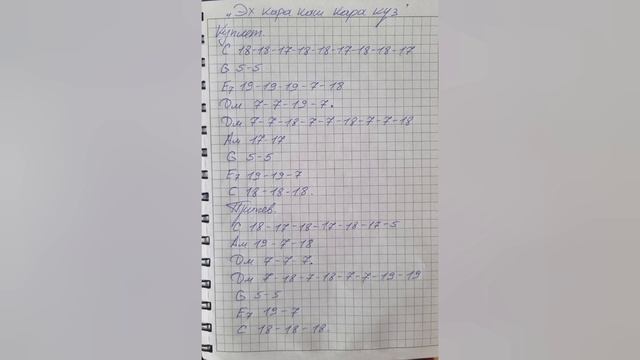 „Эх кара каш кара куз"
Куплет.
С 18-18-17-18-18-17-18-18-17
G 5-5
E7 19-19-19-7-18
Dм 7-7-19-7.
Dм 7-7-18-7-7-18-7-7-18
Ам 17-17
G 5-5
E7 19-19-7
С 18-18-18.
Припев.
С 18-17-18-17-18-17-5
Ам 19-7-18
Dм 7-7-7.
Dм 7-18-7-18-7-7-19-19
G 5-5
E7 19-7
С 18-18-18